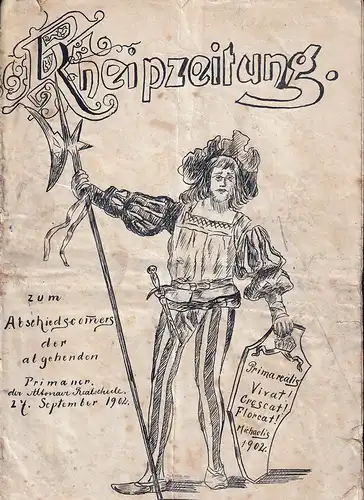 Kneipzeitung.
zum
Abschiedscomers
der
abgehenden
Primaner.
der Altonaer Realschule.
27. September 1902.
Primaealis
Vivat!
Crescat!
Florcat!
Michaelis
1902.